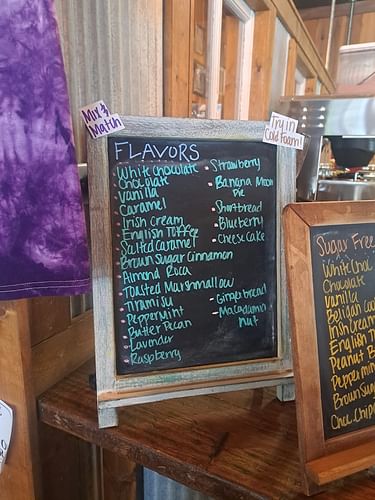 Mix &
Match
Try in
Cold Foam!
FLAVORS
White Chocolate
Chocolate
Vanilla
Caramel
Irish Cream
English Toffee
Salted Caramel
Brown Sugar Cinnamon
Almond Roca
Toasted Marshmallow
Tiramisu
Peppermint
Butter Pecan
Lavender
Raspberry
Strawberry
Banana Moon
Pie
Shortbread
Blueberry
Cheesecake
Gingerbread
Macadamia
Nut
Sugar Free
White Choc
Chocolate
Vanilla
Belgian
Irish Cream
English T
Peanut B
Peppermin
Brown Sug
Choc. Chip